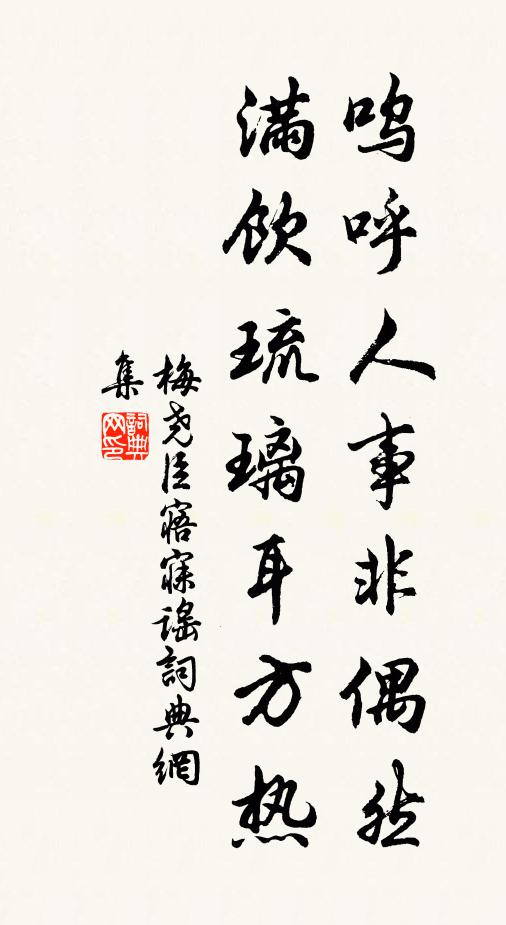 呜呼人事非偶然
满饮琉璃耳方热
梅尧臣寤寐谣詞典網
集
詞典
网印